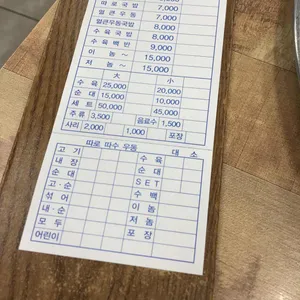 따로국밥 7,000
얼큰우동 7,000
얼큰우동국밥 8,000
수육국밥 8,000
수육백반 9,000
이놈~ 15,000
저놈~ 15,000
大 小
수육 25,000 20,000
순대 15,000 10,000
세트 50,000 45,000
주류 3,500 음료수 1,500
사리 2,000 1,000 포장
따로 따수 우동 대 소
고기 수육
내장 순대
순대 SET
고·순 수백
섞어 이놈
내·순 저놈
모두 포장
어린이